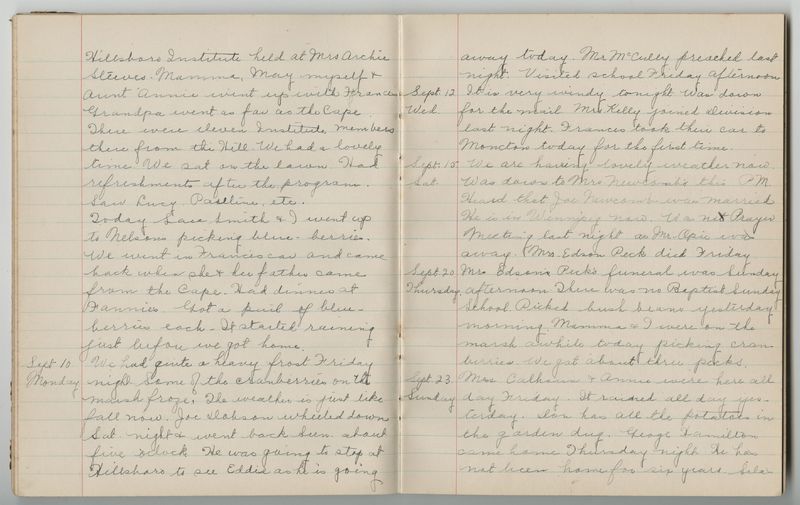 Hillsboro Institute held at Mrs Archie
Steeves. Mamma, May myself &
Aunt Annie went up with Frances
Grandpa went as far as the Cape.
There were eleven Institute members
there from the Hill. We had a lovely
time. We sat on the lawn. Had
refreshments after the program.
Saw Lucy, etc.
Today Smith & I went up
to Nelsons picking blue-berries.
We went in Frances car and came
back when she & her father came
from the Cape. Had dinner at
Fannies. Got a pail of blue-
berries each. It started raining
just before we got home.
Sept 10 We had quite a heavy frost Friday
Monday night some of the cranberries on the
marsh froze. The weather is just like
fall now. Joe Dobson wheeled down
Sat. night & went back Sun. about
five o'clock. He was going to stop at
Hillsboro to see Eddie as he is going
away today. Mr McCully preached last
night. Visited school Friday afternoon
Sept. 12 It is very windy tonight Was down
Wed. for the mail Mrs Kelly joined Division
last night. Frances took their car to
Moncton today for the first time.
Sept. 15 We are having lovely weather now.
Sat. Was down to Mrs Newcomb's this P.M.
Heard that Joe Newcomb was married
He is in Winnipeg now. Was no Prayer
Meeting last night as Mr. Opie was
away. Mrs. Edson Peck died Friday
Sept. 20 Mrs Edson Peck's funeral was Sunday
Thursday. afternoon There was no Baptist Sunday
School. Picked bush beans yesterday
morning. Mamma & I were on the
marsh awhile today picking cran
berries. We got about three pecks.
Sept 23 Mrs Calhoun & Annie were here all
Sunday day Friday. It rained all day yes-
terday. Don has all the potatoes in
the garden dug. George Hamilton
came home Thursday night He has
not been home for six years.